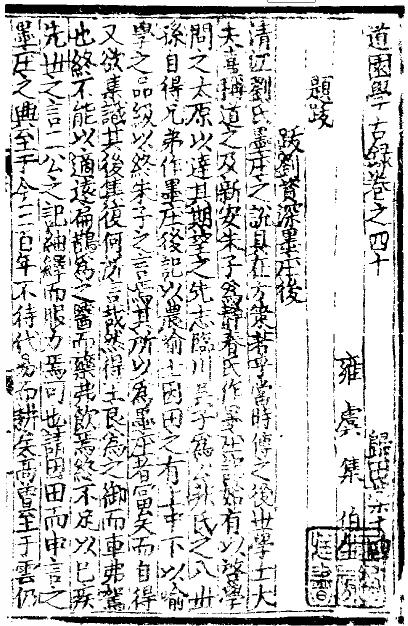 道園學古録卷之四十 歸田
雍虞集伯生
題跋
跋劉資深墨庄後
清江劉氏墨庄之說具在方策著當時傳之後世學士大
夫喜稱道之及新安朱子爲静春氏作墨庄記始有以啓學
問之大原以達其期望之先志臨川吴子爲公升氏之八世
孫自得兄弟作墨庄後記以農喻士因田之有上中下以喻
學之品級以終朱子之言焉其所以爲墨庄者富矣而自得
又欲集識其後集復何所言哉然得王良爲之御而車弗駕
也終不能以適遠扁鵲爲之醫而藥弗飲焉終不足以已疾
先世之言二公之記紬繹而服力焉可也請因田而申言之
墨庄之興至于今二百年不待代易而耕矣髙曾至于雲仍